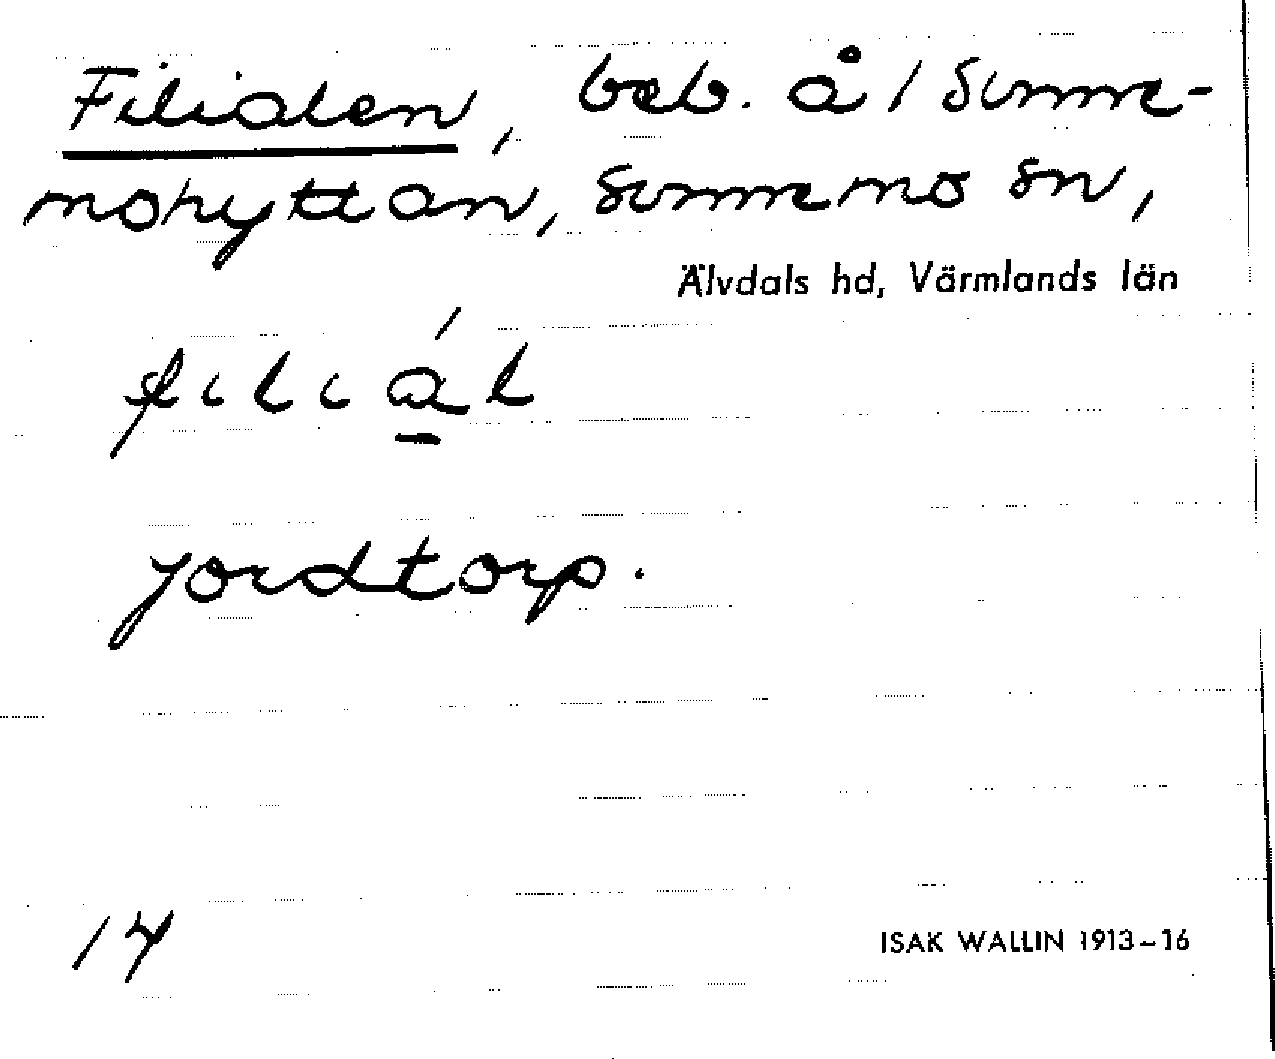 Filialen, beb. å 1 Sunne-
mohyttan, Sunnemo sn,
Älvdals hd, Värmlands län
filiál
jordtorp.
14
ISAK WALLIN 1913–16